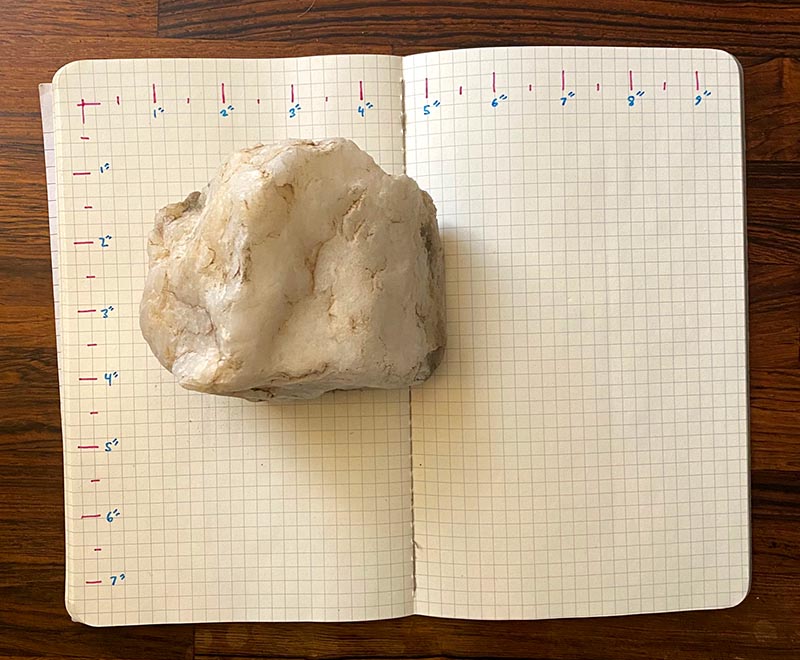 1" 2" 3" 4" 5" 6" 7" 8" 9"
1"
2"
3"
4"
5"
6"
7"